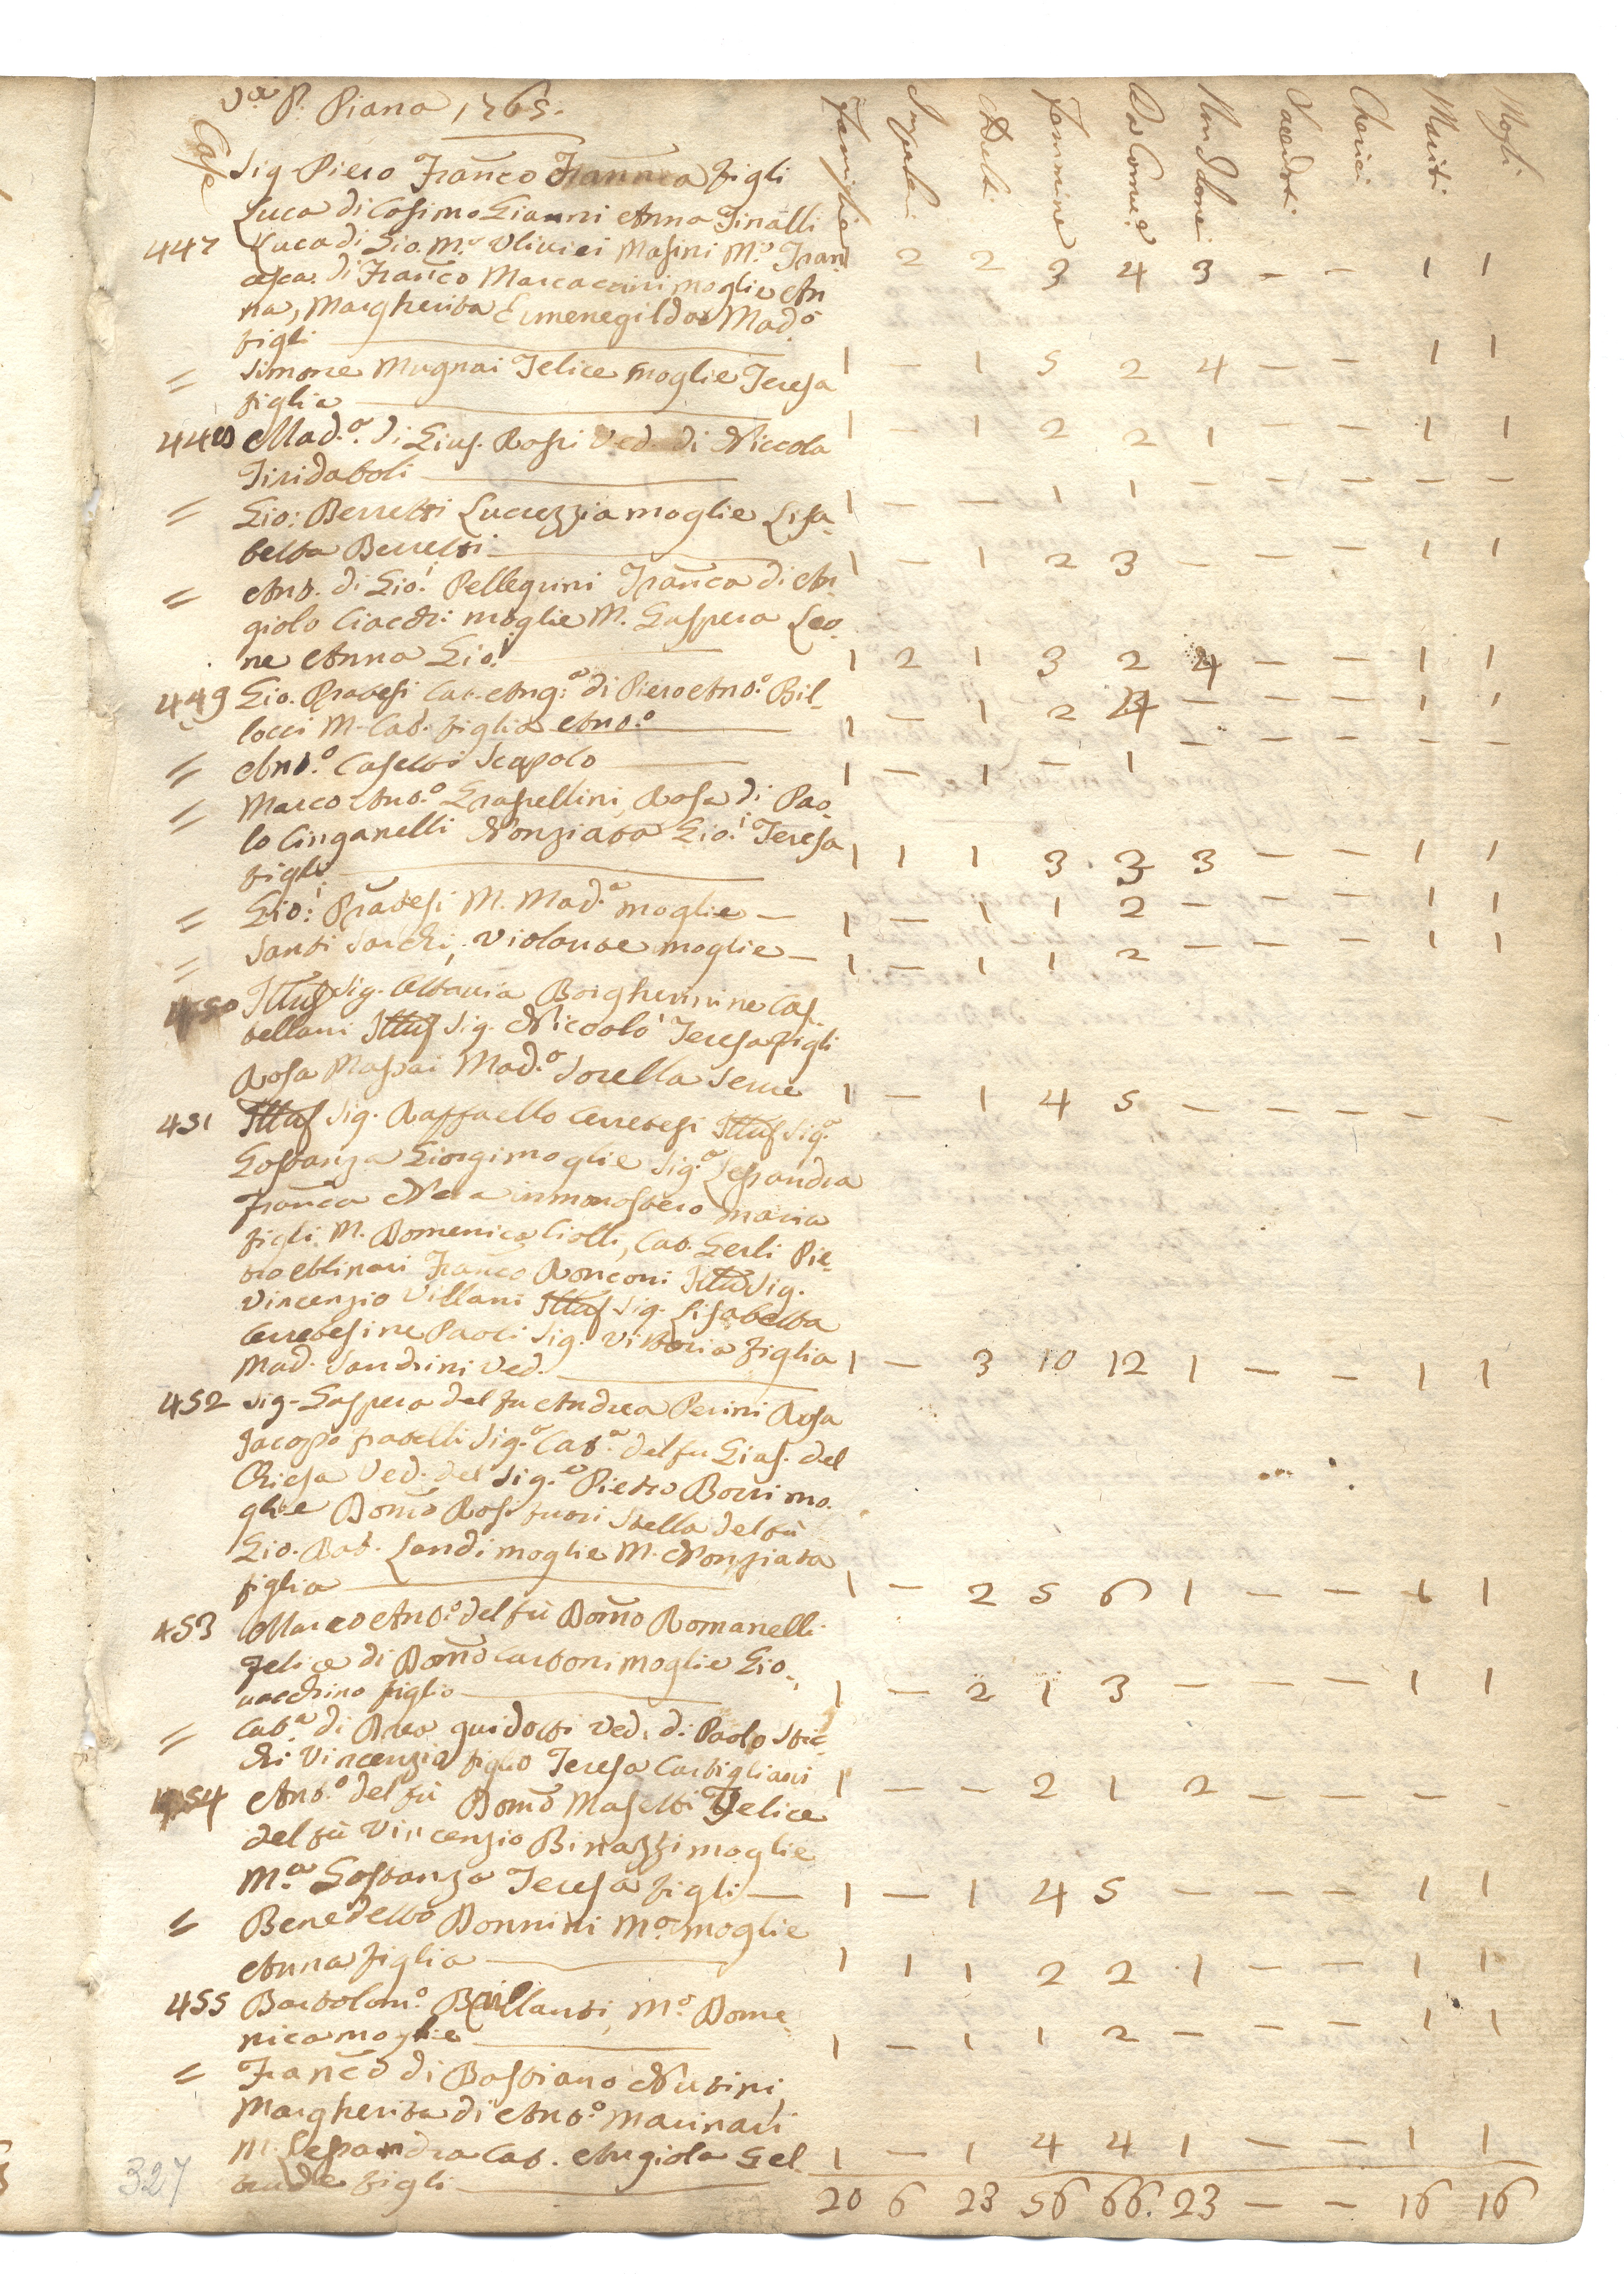 P. Piana 1765.
Case Famiglie Maschi Adulti Femmine Da Comu.e Non Idonei Sacedoti Cherici Mariti Mogli
Sig Piero Franco Franca figli
Luca di Cosimo Gianni Anna Finalli
447 Luca di Gio. M.a Ulivieri Masini M.a Fran 2 2 3 4 3 – – 1 1
cesca di Franco Marcaccini moglie An
na, Margherita Ermenegilda Mad.a
figli
= Simone Mugnai Felice moglie Teresa 1 – 1 5 2 4 – – 1 1
figlia
448 Mad.a di Gius. Rossi Ved. di Niccola 1 – 1 2 2 1 – – 1 1
Tiridaboli
= Gio: Berretti Lucrezzia moglie Lisa 1 – – 1 1 – – – – –
betta Berretti 1 – 1 2 3 – – – 1 1
= Ant. di Gio: Pellegrini Franca di An
giolo Ciacchi moglie M. Gaspera Leo
ne Anna Gio: 1 2 1 3 2 4 – – 1 1
449 Gio. Pratesi Cat. Ang.a di Piero Ant.o Bil
locci M. Cat. figlia Ant.o 1 – 1 2 4 – – – 1 1
= Ant.o Casetti Scapolo 1 – 1 – 1 – – – – –
= Marco Ant.o Grassellini, Rosa di Pao
lo Cinganelli Nonziata Gio: Teresa 1 1 1 3 3 3 – – 1 1
figli
= Gio: Pratesi M. Mad.a moglie – 1 – 1 1 2 – – – 1 1
= Santi Sarchi, Violante moglie – 1 – 1 1 2 – – – 1 1
450 Illus Sig. Ottavia Borgherinine Cas
tellani Illus Sig. Niccolò Teresa figli
Rosa Massai Mad.a Sorella Serve 1 – 1 4 5 – – – – –
451 Illus Sig. Raffaello Cerretesi Illus Sig.a
Gostanza Giorgi moglie Sig.a Lessandra
Franca Nera in monastero Maria
figli M. Domenica Ciolli, Cat. Gerli Pie
tro Molinari Franco Ronconi Illus Sig.
Vincenzio Villani Illus Sig. Lisabetta
Cerretesi ne Paoli Sig. Vittoria figlia 1 – 3 10 12 1 – – 1 1
Mad. Sandrini Ved.
452 Sig. Gaspero del fu Andrea Perini Rosa
Jacopo fratelli Sig.a Cat.a del fu Gius. del
Chiesa Ved. del Sig.e Pietro Borri mo
glie Domo Rossi fuori Stella del fù
Gio. Bat. Landi moglie M. Nonziata
figlia 1 – 2 5 6 1 – – 1 1
453 Marco Ant.o del fù Domo Romanelli
Felice di Domo Carboni moglie Gio
vacchino figlio 1 – 2 1 3 – – – 1 1
= Cat.a di Guidotti Ved. di Paolo Stec
chi Vincenzio figlio Teresa Cartigliani 1 – – 2 1 2 – – – –
454 Ant.o del fù Domo Masetti Felice
del fù Vincenzio Binazzi moglie
M.a Gostanza Teresa figli – 1 – 1 4 5 – – – 1 1
= Benedetto Donnini M.a moglie
Anna figlia 1 1 1 2 2 1 – – 1 1
455 Bartolom.o Brillanti, M.a Dome
nica moglie 1 – 1 1 2 – – – 1 1
= Franco di Bastiano Nutini
Margherita di Ant.o Marinari
M. Lessandra Cat. Angiola Gel 1 – 1 4 4 1 – – 1 1
trude figli
20 6 23 56 66. 23 – – 16 16
327